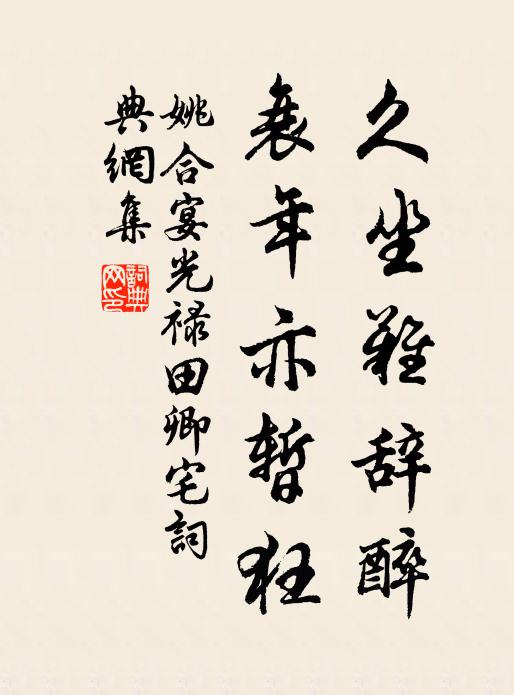 久坐難辞醉
衰年亦暫狂
姚合宴光禄田卿宅詞
典網集
詞典網印